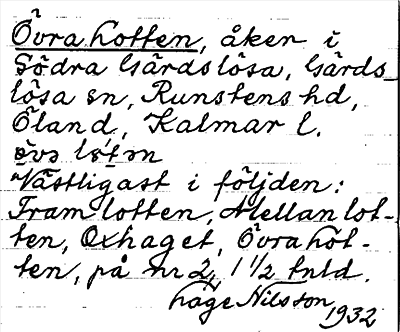 Övra Lotten, åker i
Södra Gärdslösa, Gärds
lösa sn, Runstens hd,
Öland, Kalmar l.
Västligast i följden:
Framlotten, Mellanlot-
ten, Oxhaget, Övra lot-
ten, på nr 2, 1 1/2 tnld.
Hage Nilsson 1932